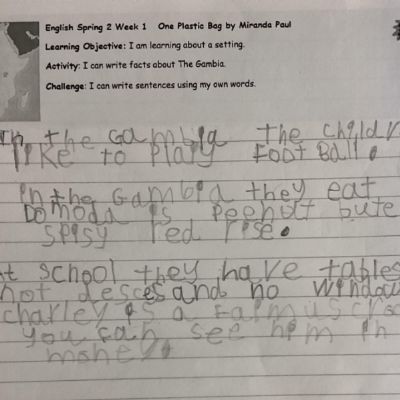 English Spring 2 Week 1 One Plastic Bag by Miranda Paul
Learning Objective: I am learning about a setting.
Activity: I can write facts about The Gambia.
Challenge: I can write sentences using my own words.
In the Gambia the childr
like to play Foot Ball.
in the Gambia they eat
Domoda is peenolt bute
spisy red rise.
At school they have tables
not desces and no window
charley is a famus croc
you can see him in
money.